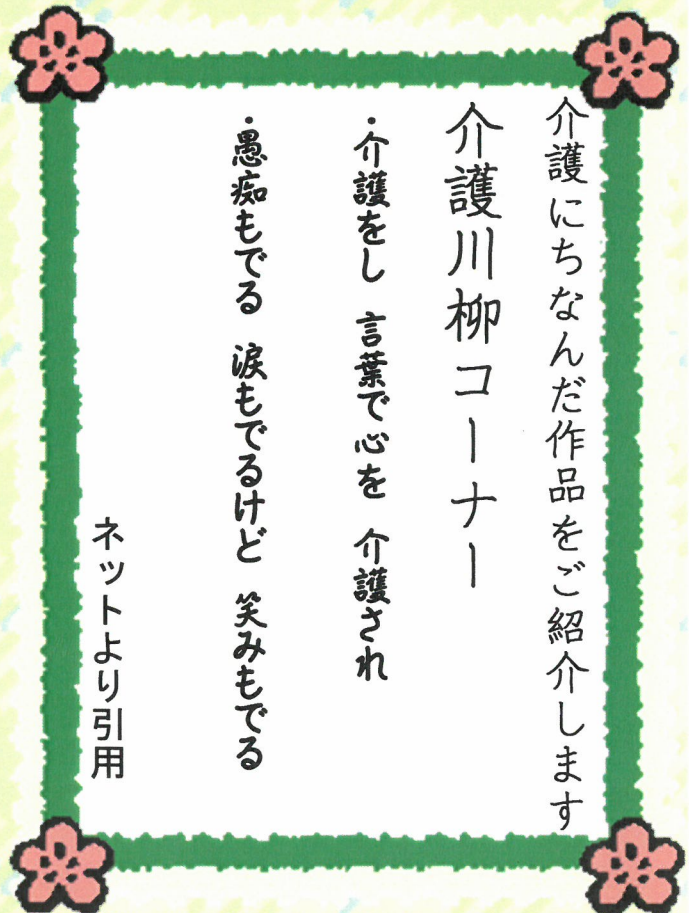 介護にちなんだ作品をご紹介します
介護川柳コーナー
・介護をし 言葉で心を 介護され
・愚痴もでる 涙もでるけど 笑みもでる
ネットより引用